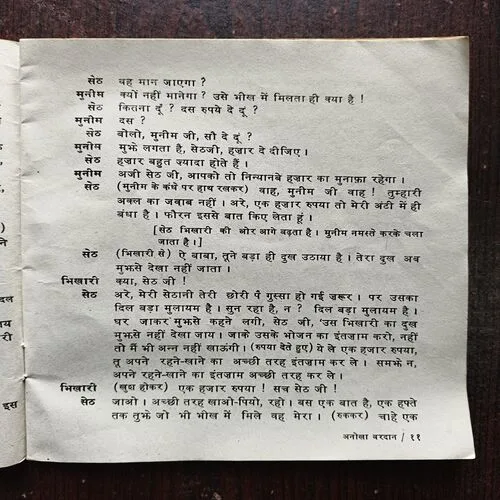 सेठ वह मान जाएगा ?
मुनीम क्यों नहीं मानेगा ? उसे भीख में मिलता ही क्या है !
सेठ कितना दूँ ? दस रुपये दे दूँ ?
मुनीम दस ?
सेठ बोलो, मुनीम जी, सौ दे दूँ ?
मुनीम मुझे लगता है, सेठजी, हज़ार दे दीजिए ।
सेठ हज़ार बहुत ज्यादा होते हैं ।
मुनीम अजी सेठ जी, आपको तो निन्यानबे हजार का मुनाफ़ा रहेगा ।
सेठ (मुनीम के कंधे पर हाथ रखकर) वाह, मुनीम जी वाह ! तुम्हारी
अक्ल का जवाब नहीं । अरे, एक हजार रुपया तो मेरी अंटी में ही
बंधा है । फौरन इससे बात किए लेता हूं ।
[सेठ भिखारी की ओर आगे बढ़ता है । मुनीम नमस्ते करके चला
जाता है ।]
सेठ (भिखारी से) ऐ बाबा, तूने बड़ा ही दुख उठाया है । तेरा दुख अब
मुझसे देखा नहीं जाता ।
भिखारी क्या, सेठ जी !
सेठ अरे, मेरी सेठानी तेरी छोरी पै गुस्सा हो गई ज़रूर । पर उसका
दिल बड़ा मुलायम है । सुन रहा है, न ? दिल बड़ा मुलायम है ।
घर जाकर मुझसे कहने लगी, सेठ जी, 'उस भिखारी का दुख
मुझसे नहीं देखा जाय । जाके उसके भोजन का इंतजाम करो, नहीं
तो मैं भी अन्न नहीं खाऊंगी । (रुपया देते हुए) ये ले एक हजार रुपया,
तू अपने रहने-खाने का अच्छी तरह इंतजाम कर ले । समझे न,
अपने रहने-खाने का इंतजाम अच्छी तरह कर ले ।
भिखारी (खुश होकर) एक हजार रुपया ! सच सेठ जी !
सेठ जाओ । अच्छी तरह खाओ-पियो, रहो । बस एक बात है, एक हफ्ते
तक तुझे जो भी भीख में मिले वह मेरा । (रुककर) चाहे एक
अनोखा वरदान / ११